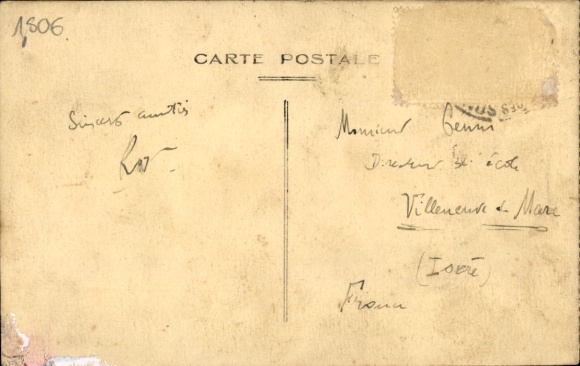 1,806
CARTE POSTALE
Sincères amitiés
Monsieur
Directeur d'école
Villeneuve de Marc
(Isère)
France